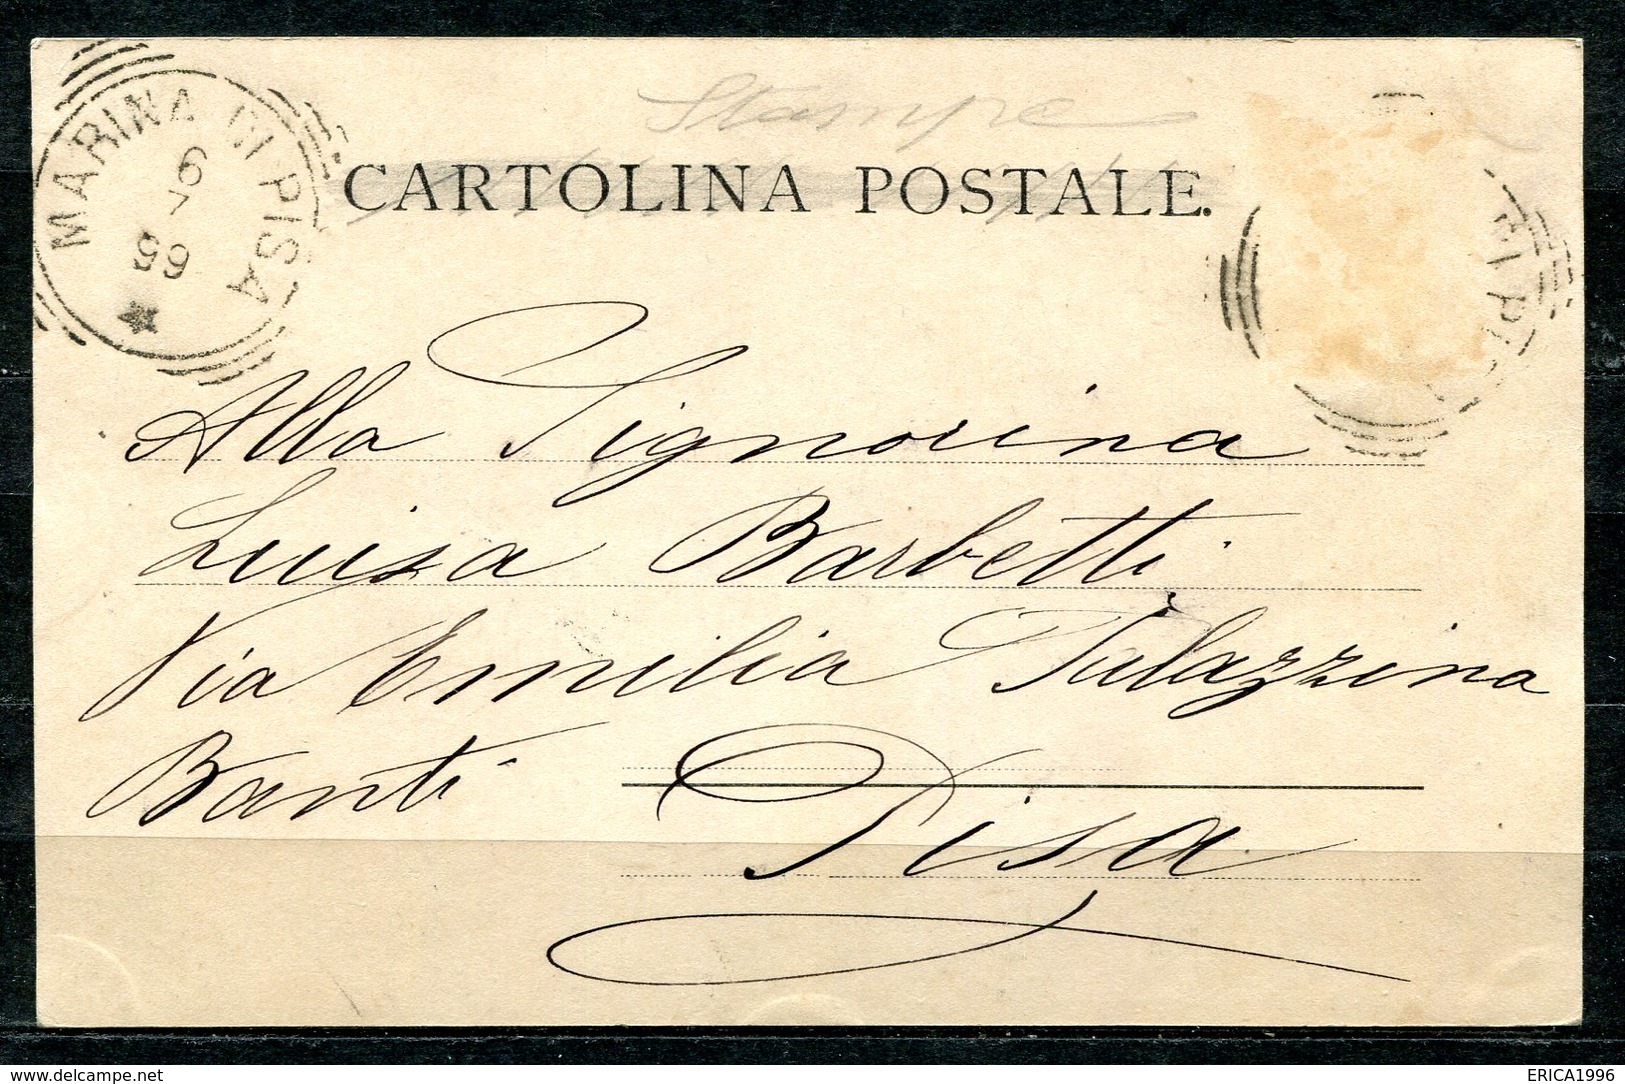 Stampe
MARINA DI PISA
6
7
99
CARTOLINA POSTALE.
DI PIS
Alla Signorina
Luisa Barbetti
Via Emilia Palazzina
Banti
Pisa
delcampe.net
ERICA1996